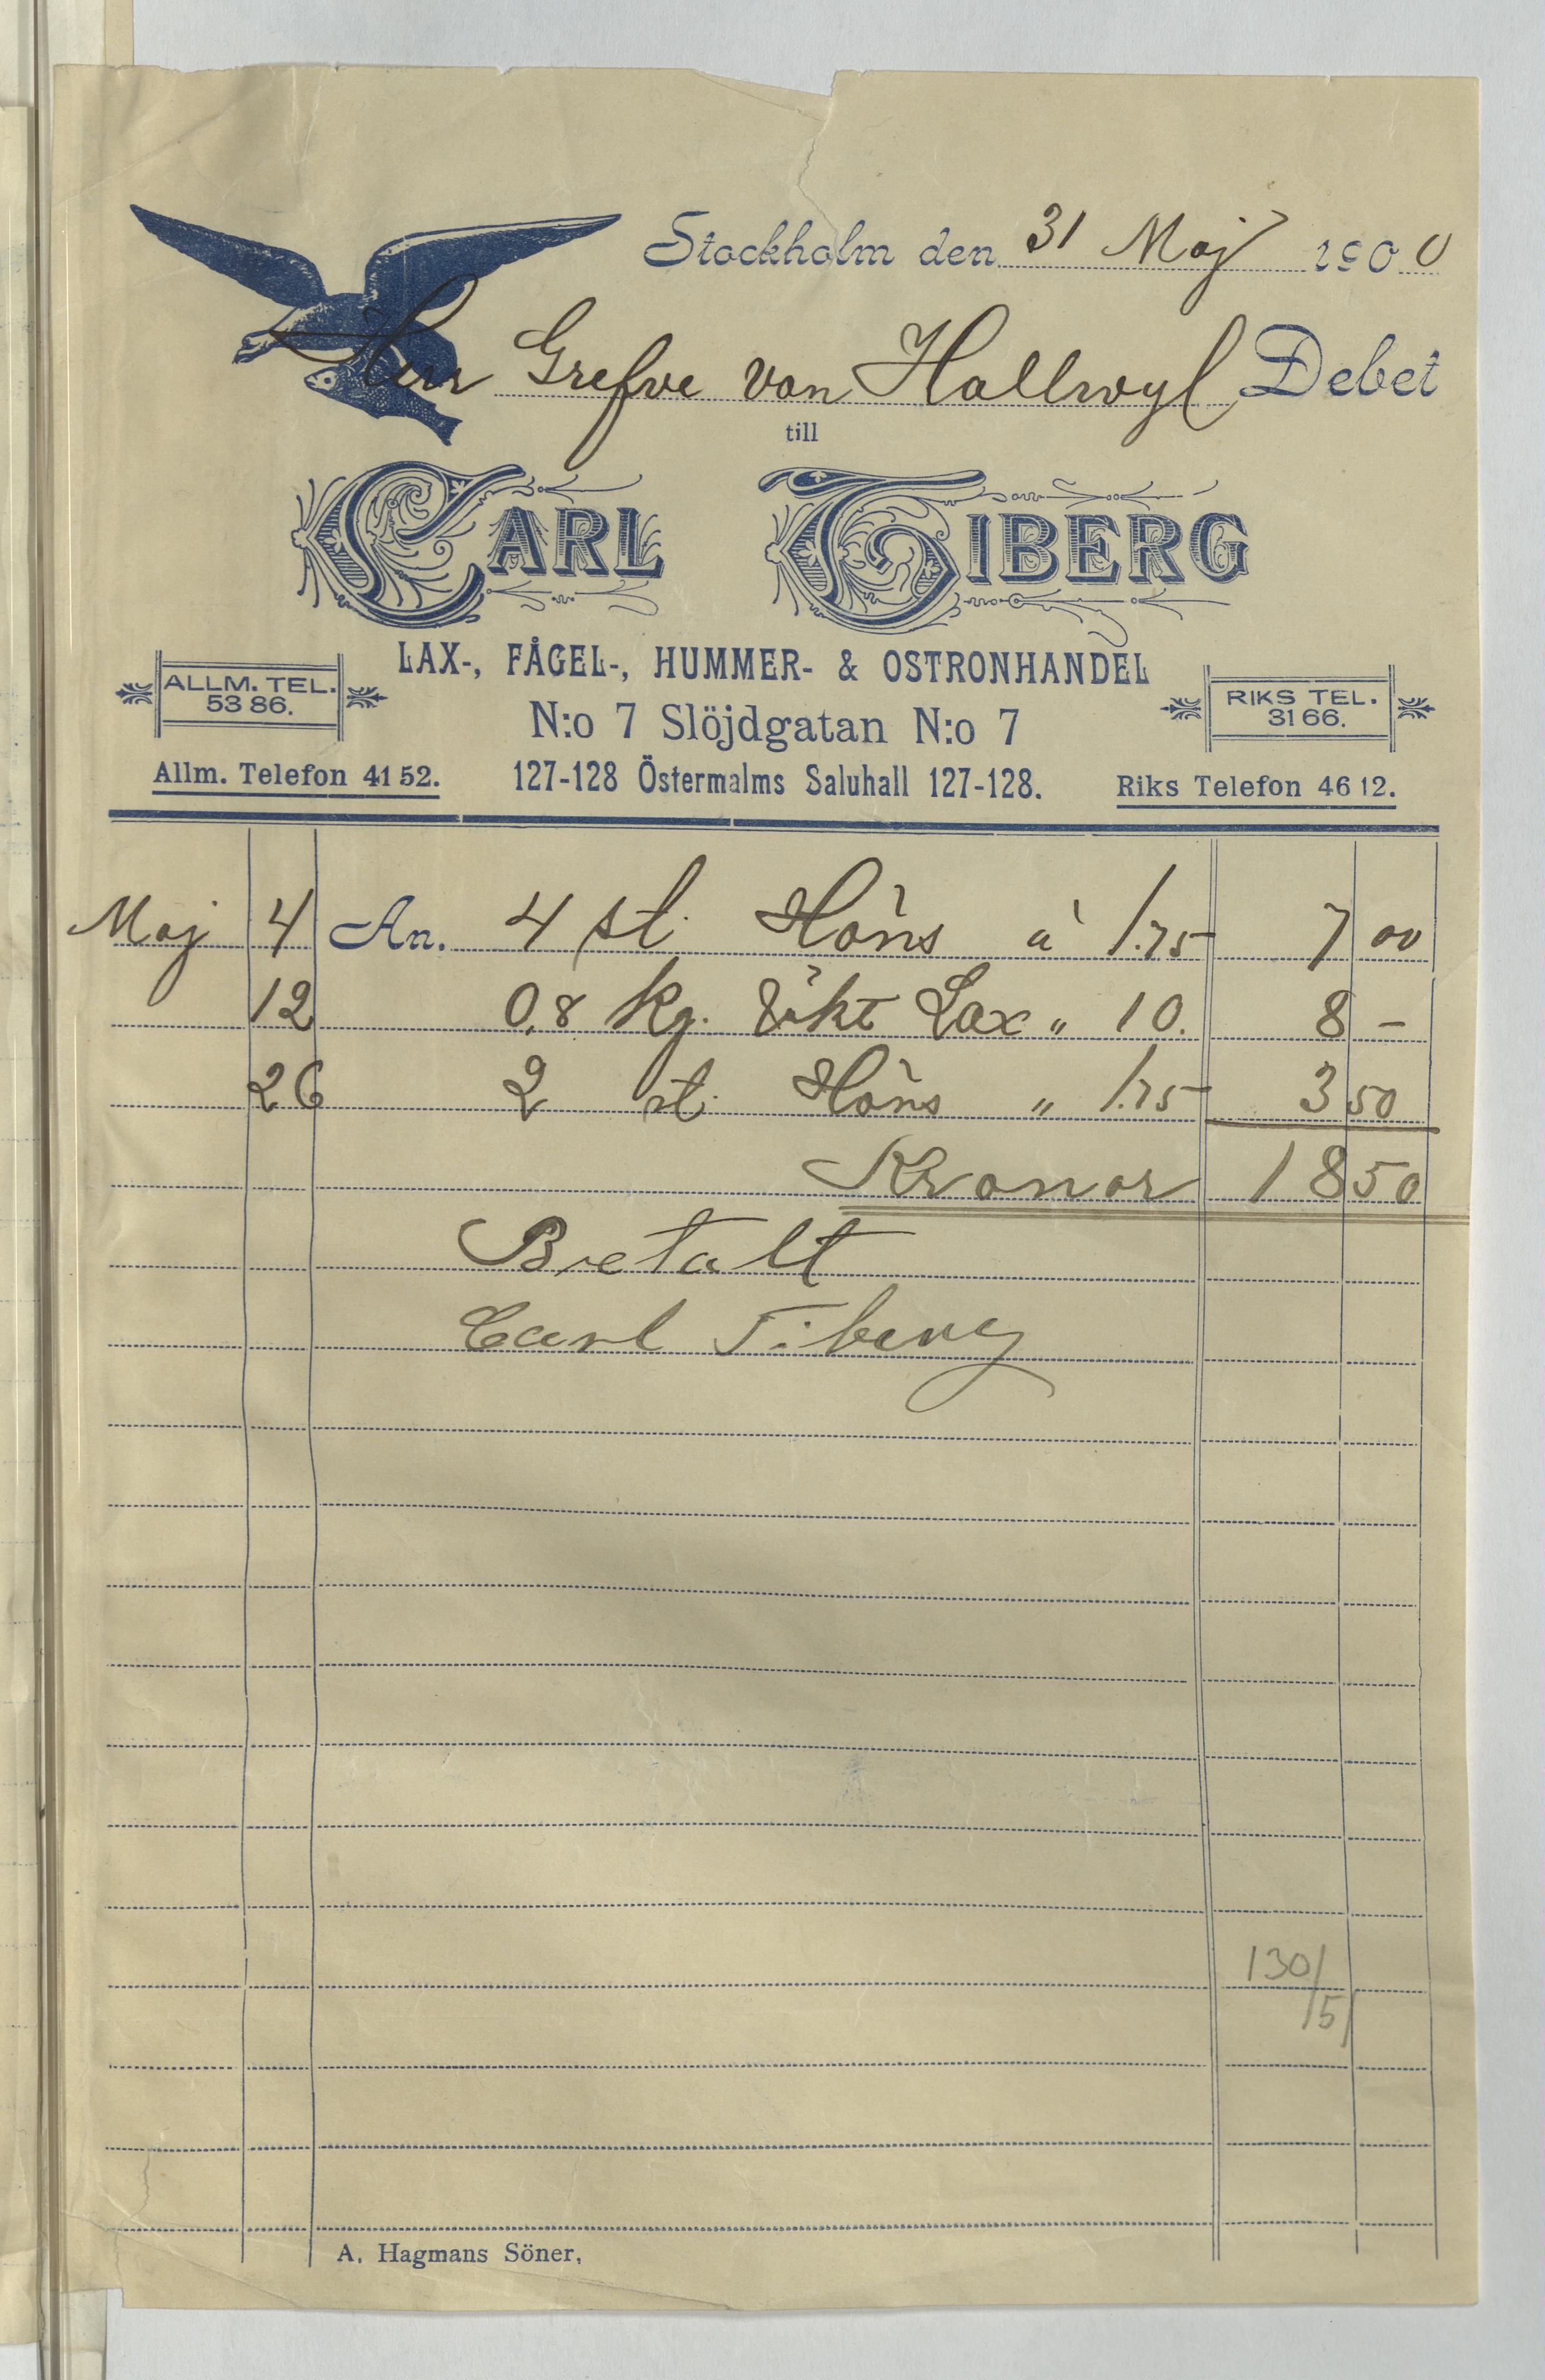 Stockholm den 31 Maj 1900
Herr Grefve von Hallwyl Debet
till
CARL TIBERG
LAX-, FÅGEL-, HUMMER- & OSTRONHANDEL
ALLM. TEL.
53 86.
N:o 7 Slöjdgatan N:o 7
RIKS TEL.
31 66.
Allm. Telefon 41 52.
127-128 Östermalms Saluhall 127-128.
Riks Telefon 46 12.
Maj 4 An. 4 st. Höns à 1.75 7 00
12 0,8 kg. Rökt Lax " 10. 8 –
26 2 st. Höns " 1.75 3 50
Kronor 18 50
Betalt
Carl Tiberg
130/
/5
A. Hagmans Söner,